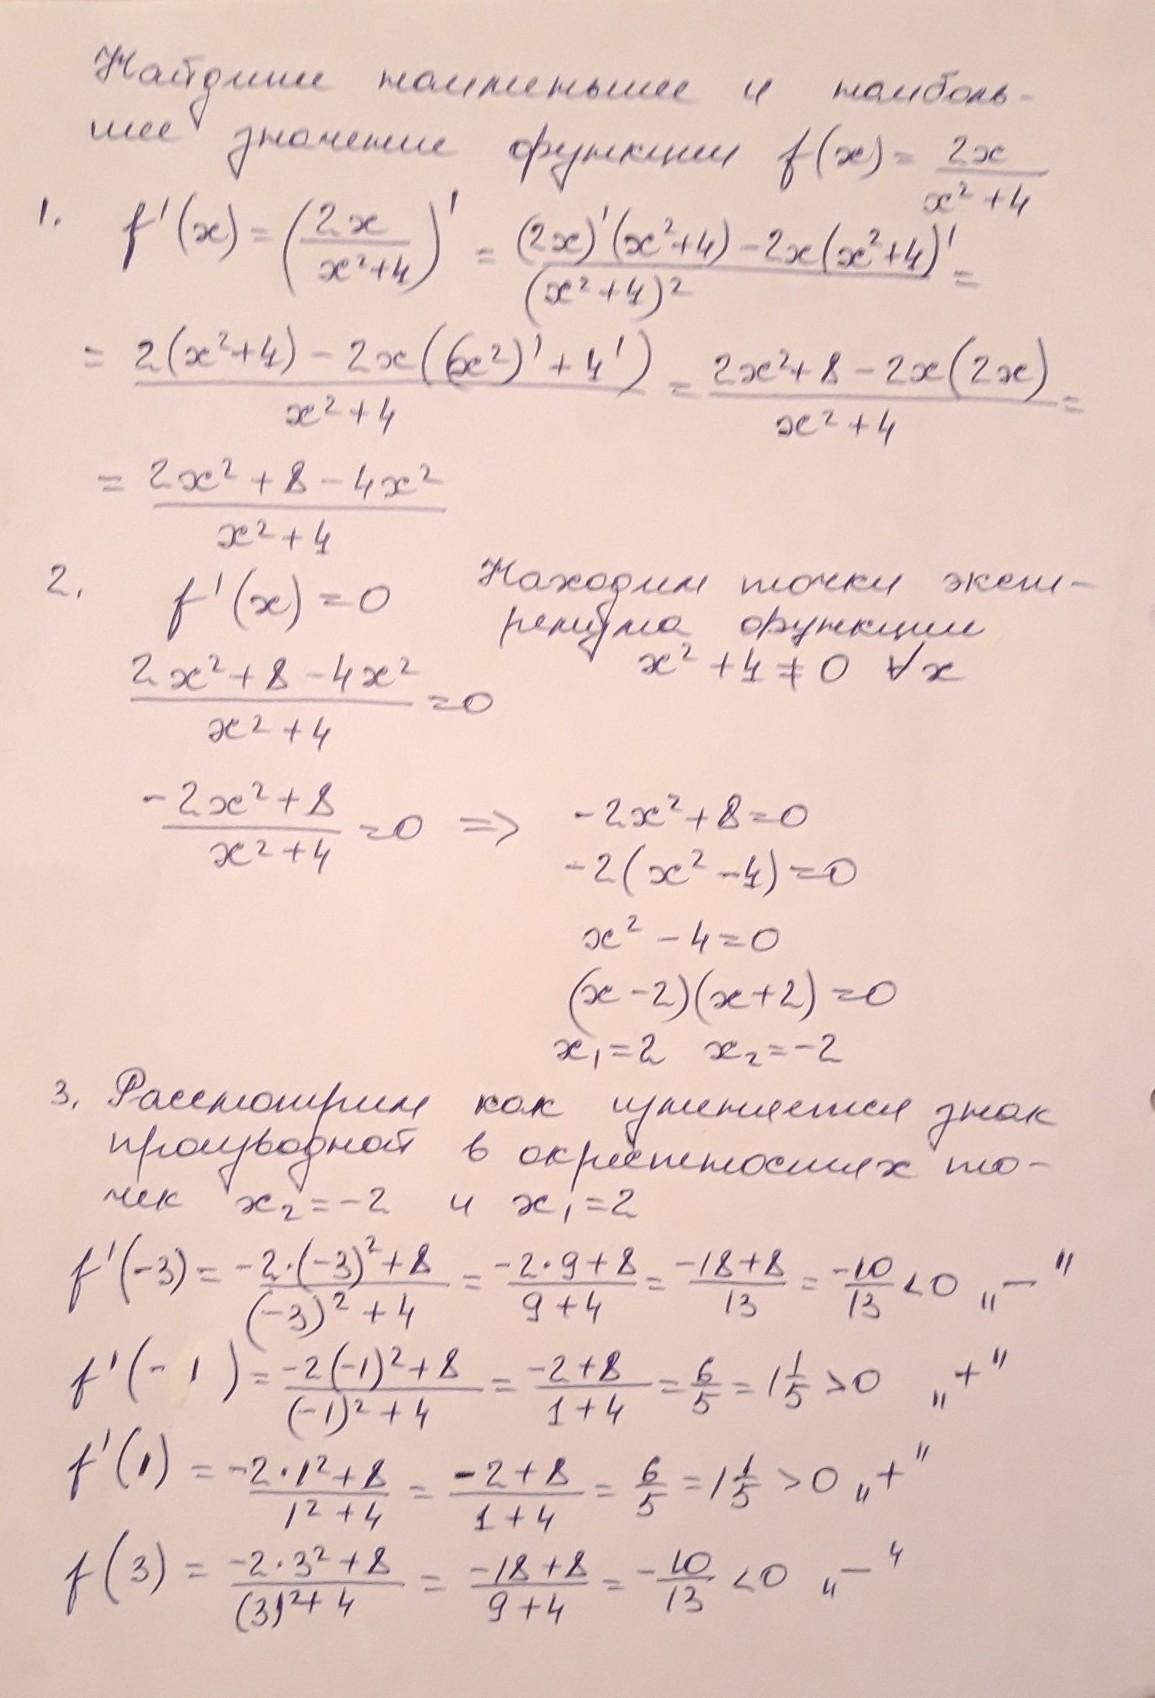 Найдите наименьшее и наиболь-
шее значение функции f(x) = 2x/(x²+4)
1. f'(x) = (2x/(x²+4))' = ((2x)'(x²+4) - 2x(x²+4)')/(x²+4)² =
= (2(x²+4) - 2x((x²)' + 4'))/(x²+4) = (2x²+8 - 2x(2x))/(x²+4) =
= (2x²+8-4x²)/(x²+4)
2. f'(x) = 0 Находим точки экст-
ремума функции
x²+4≠0 ∀x
(2x²+8-4x²)/(x²+4) = 0
(-2x²+8)/(x²+4) = 0 => -2x²+8=0
-2(x²-4)=0
x²-4=0
(x-2)(x+2)=0
x₁=2 x₂=-2
3. Рассмотрим как изменяется знак
производной в окрестностях то-
чек x₂=-2 и x₁=2
f'(-3) = (-2·(-3)²+8)/((-3)²+4) = (-2·9+8)/(9+4) = (-18+8)/13 = -10/13 <0 „-"
f'(-1) = (-2(-1)²+8)/((-1)²+4) = (-2+8)/(1+4) = 6/5 = 1 1/5 >0 „+"
f'(1) = (-2·1²+8)/(1²+4) = (-2+8)/(1+4) = 6/5 = 1 1/5 >0 „+"
f(3) = (-2·3²+8)/((3)²+4) = (-18+8)/(9+4) = -10/13 <0 „-"